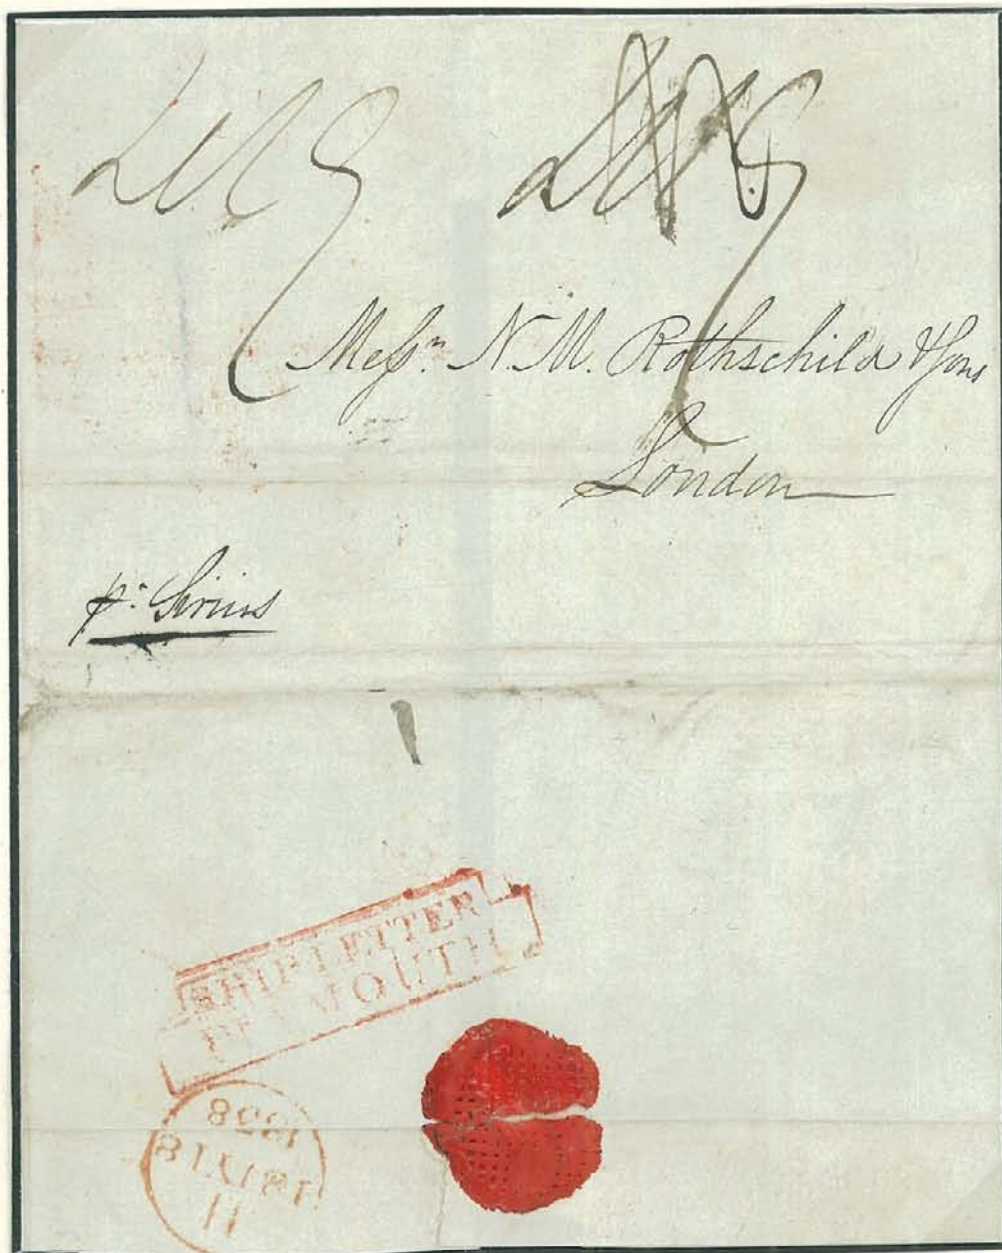 Messrs. N. M. Rothschild & Sons
London
pr. Sirius
SHIP LETTER
PLYMOUTH
1838